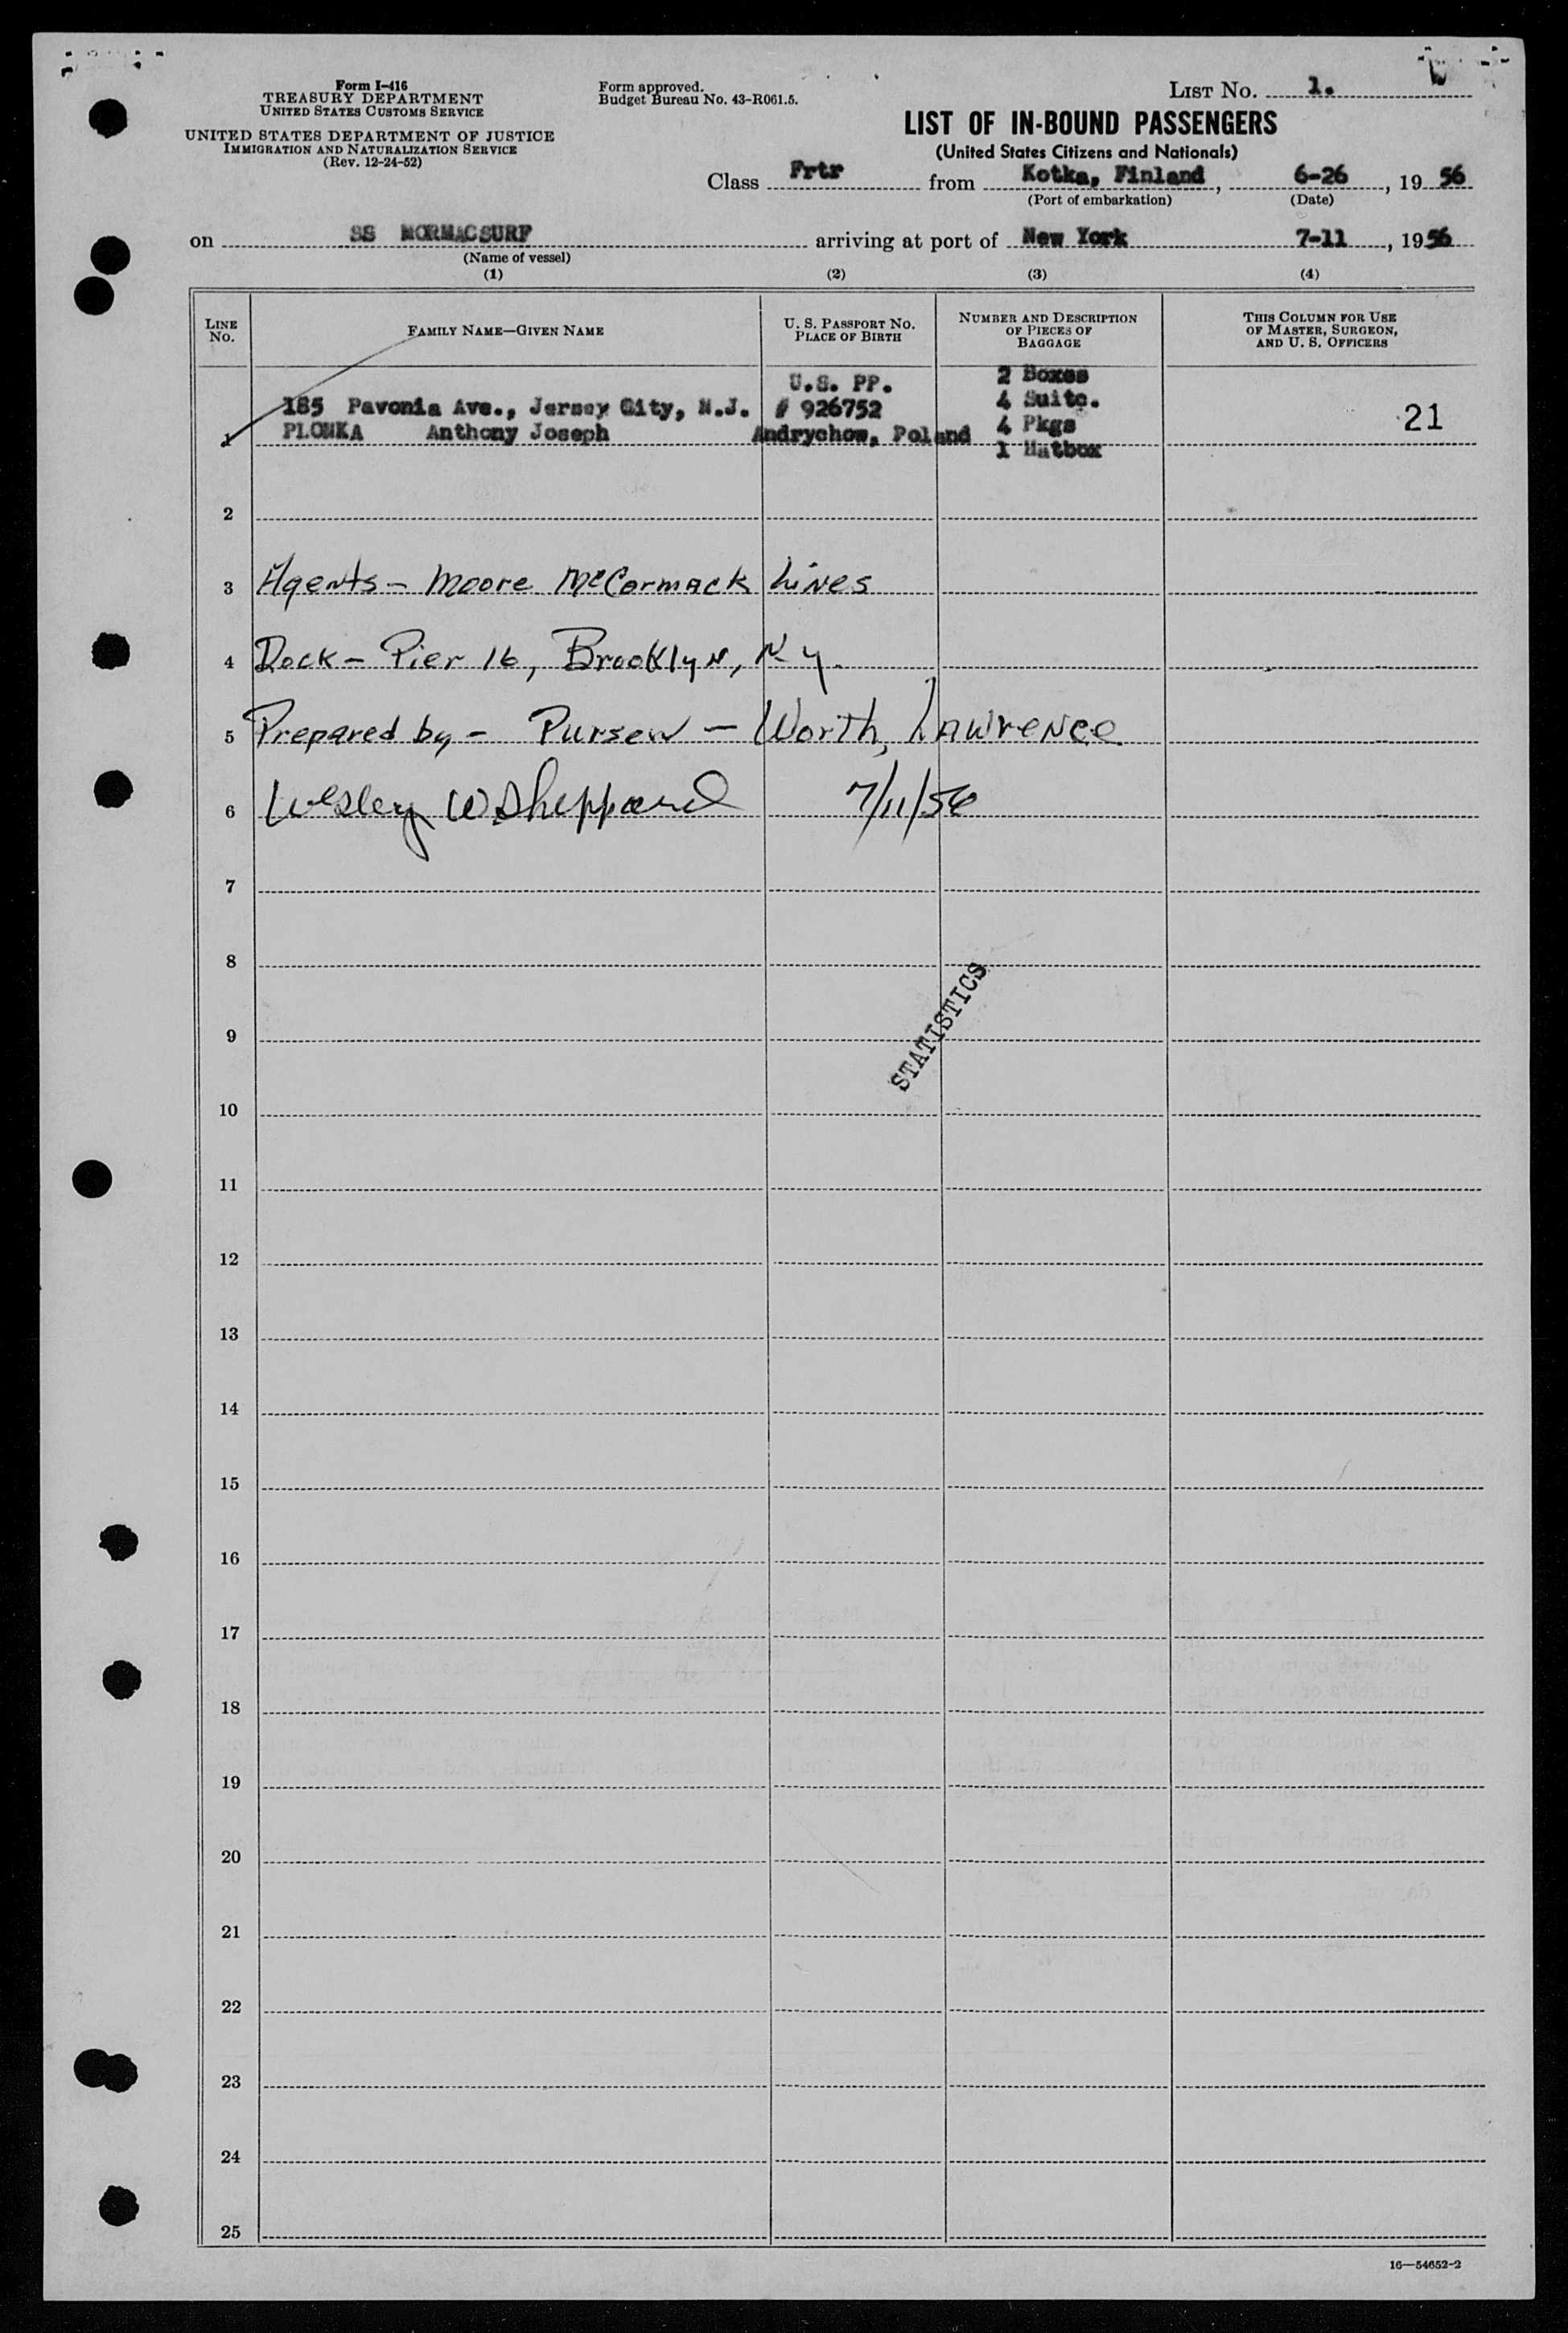 Form I-416
TREASURY DEPARTMENT
UNITED STATES CUSTOMS SERVICE
UNITED STATES DEPARTMENT OF JUSTICE
IMMIGRATION AND NATURALIZATION SERVICE
(Rev. 12-24-52)
Form approved.
Budget Bureau No. 43-R061.5.
LIST No. 1.
LIST OF IN-BOUND PASSENGERS
(United States Citizens and Nationals)
Class Frtr from Kotka, Finland, 6-26, 19 56
(Port of embarkation) (Date)
on SS MORMACSURF arriving at port of New York 7-11, 1956
(Name of vessel)
(1) (2) (3) (4)
LINE No.
FAMILY NAME—GIVEN NAME
U. S. PASSPORT NO. PLACE OF BIRTH
NUMBER AND DESCRIPTION OF PIECES OF BAGGAGE
THIS COLUMN FOR USE OF MASTER, SURGEON, AND U. S. OFFICERS
U.S. PP. 2 Boxes
185 Pavonia Ave., Jersey City, N.J. # 926752 4 Suitc.
1 PLONKA Anthony Joseph Andrychow, Poland 4 Pkgs 21
1 Hatbox
2
3 Agents - Moore McCormack Lines
4 Dock - Pier 16, Brooklyn, N.Y.
5 Prepared by - Purser - Worth, Lawrence
6 Wesley W Sheppard 7/11/56
7
8
STATISTICS
9
10
11
12
13
14
15
16
17
18
19
20
21
22
23
24
25
16—54652-2